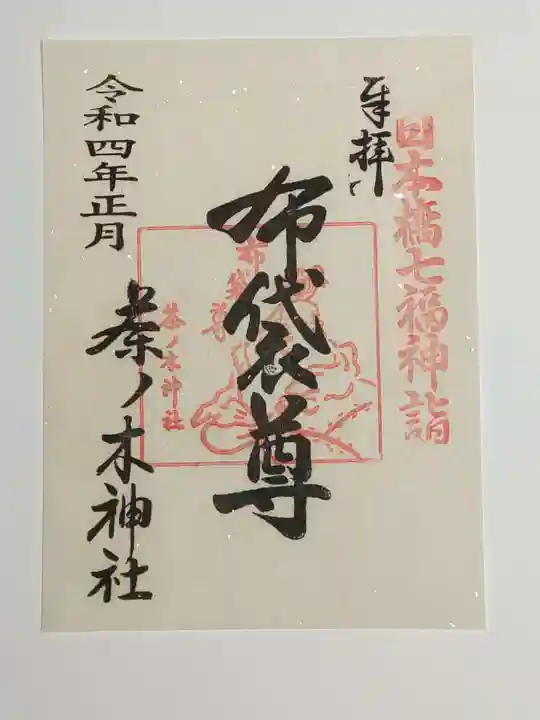 日本橋七福神詣
奉拝
布袋尊
布袋尊
茶ノ木神社
令和四年正月
茶ノ木神社